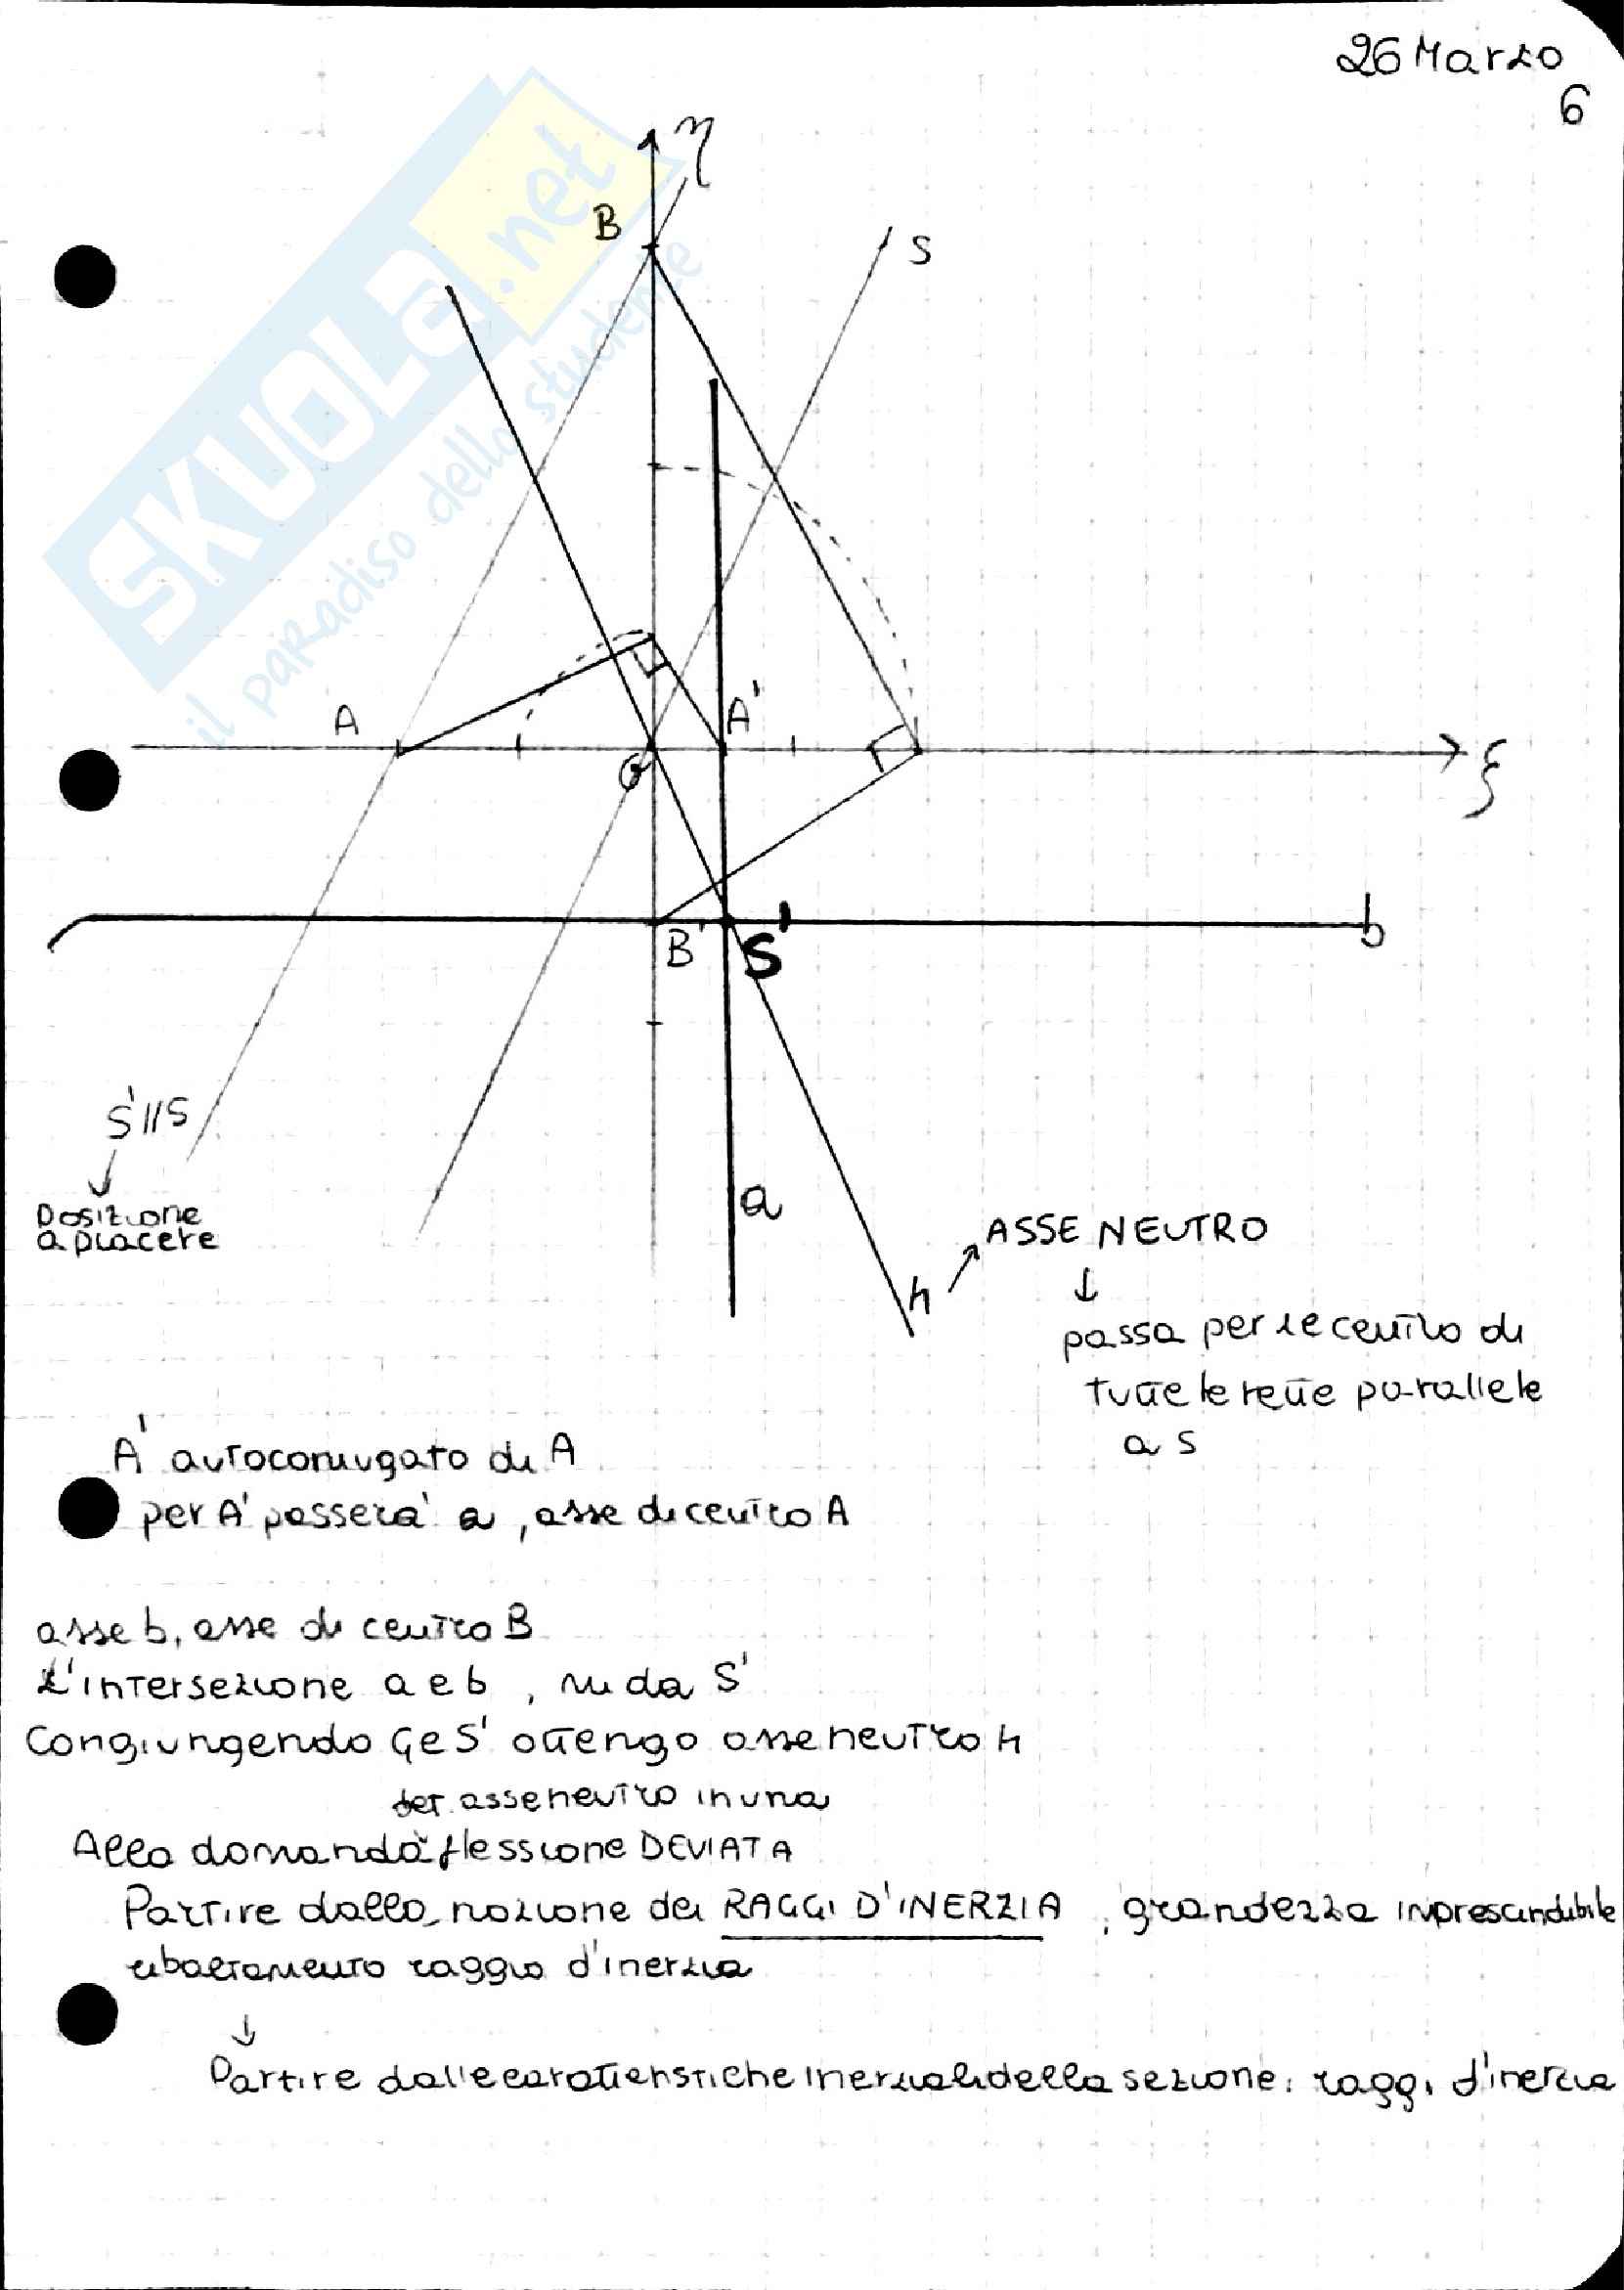 26 Marzo
6
η
B
S
A
A'
G
ξ
B'
S'
b
S'//S
Posizione
a piacere
a
n
ASSE NEUTRO
passa per i centro di
tutte le rette parallele
a S
A' autoconiugato di A
per A' passerà a, asse di centro A
asse b, asse di centro B
L'intersezione a e b, mi da S'
Congiungendo G e S' ottengo asse neutro n
det. asse neutro in una
Alla domanda flessione DEVIATA
Partire dalla nozione dei RAGGI D'INERZIA, grandezza imprescindibile
ribaltamento raggio d'inerzia
Partire dalle caratteristiche inerziali della sezione: raggi d'inerzia
SKUOLA.net
il paradiso dello studente